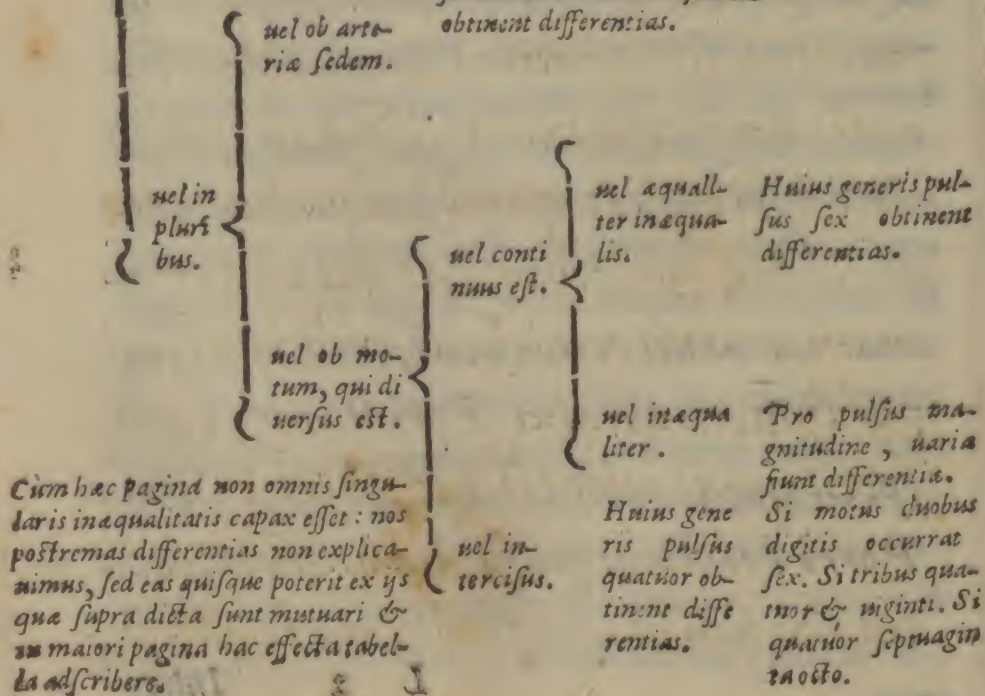 obtinent differentias.
uel ob arte-
riæ sedem.
uel in
pluri
bus.
uel ob mo-
tum, qui di
uersus est.
uel conti
nuus est.
uel in-
tercisus.
uel æquali-
ter inæqua-
lis.
Huius generis pul-
sus sex obtinent
differentias.
uel inæqua
liter.
Pro pulsus ma-
gnitudine, uariæ
fiunt differentiæ.
Si motus duobus
digitis occurrat
sex. Si tribus qua-
tuor & uiginti. Si
quatuor septuagin
ta octo.
Huius gene
ris pulsus
quatuor ob-
tinent diffe
rentias.
Cùm hæc pagina non omnis singu-
laris inæqualitatis capax esset: nos
postremas differentias non explica-
uimus, sed eas quisque poterit ex ijs
quæ supra dicta sunt mutuari &
in maiori pagina hac effecta tabel-
la adscribere.